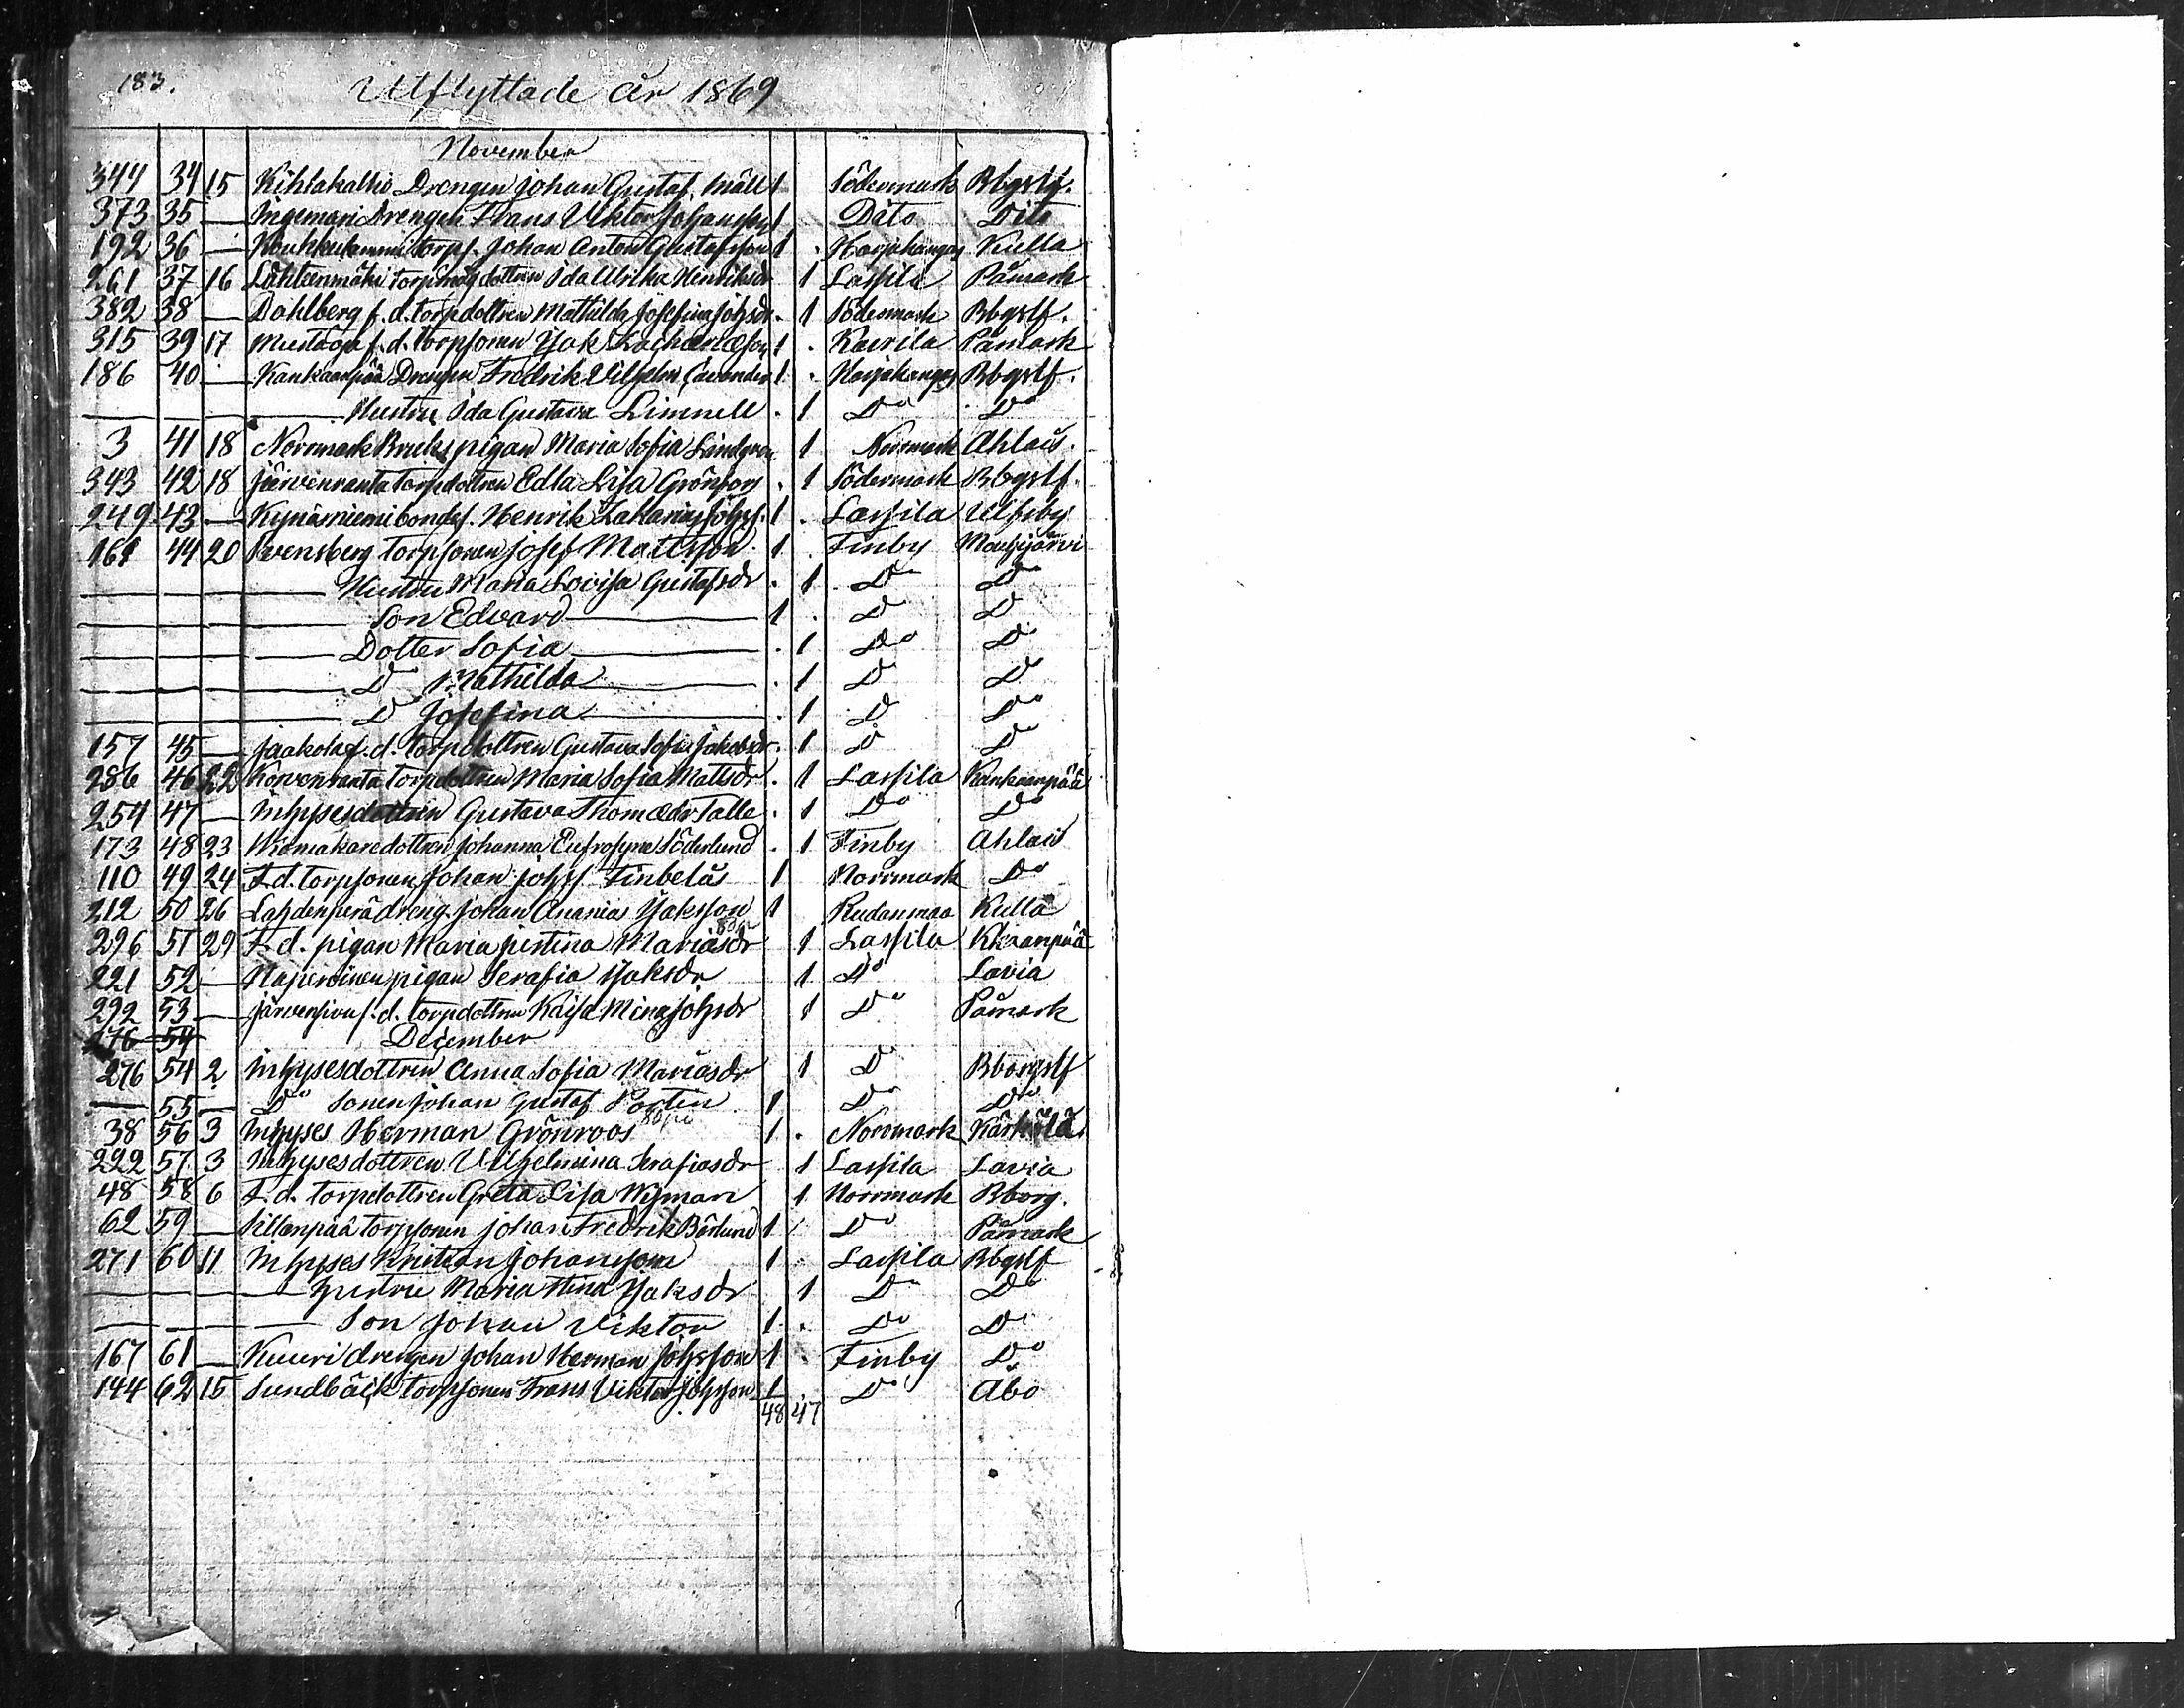 183.
Utflyttade år 1869
November
344 34 15 Kihlakallio Drengen Johan Gustaf Mäll 1 Södermark Bbgslf.
373 35 — Ingemari Drengen Frans Viktor Johansson 1 Dito Dito
192 36 — torps. Johan Anton Gustafsson 1 . Harjakangas Kulla
261 37 16 Lähteenmäki torp dottren Ida Ulrika Henriksdr 1 Lassila Påmark
382 38 — Dahlberg f. d. torpdottren Mathilda Josefina Johsdr . 1 Södermark Bbgslf.
315 39 17 f. d. torpsonen Isak Zachæson 1 . Kairila Påmark
186 40 — Kankaanpää Drengen Fredrik Vilhelm 1 . Harjakangas Bbgslf.
— Hustru Ida Gustava Limnell . 1 Do Do
3 41 18 Norrmark Bruks pigan Maria Sofia Lindgren 1 Norrmark Ahlais.
343 42 18 Järvenranta torpdottren Edla Lisa Grönfors . 1 Södermark Bbgslf.
249 43 — Kynäsniemi bondes. Henrik Zakarias Johss. 1 . Lassila Ulfsby
161 44 20 Svensberg torpsonen Josef Mattsson 1 . Finby Mouhijärvi
— Hustru Maria Lovisa Gustafsdr . 1 Do Do
— Son Edvard — 1 . Do Do
— Dotter Sofia — . 1 Do Do
— Do Mathilda — . 1 Do Do
— Do Josefina — . 1 Do Do
157 45 — Jaakola f. d. torpdottren Gustava Sofia Jakobsdr . 1 Do Do
286 46 22 Korvenranta torpdottren Maria Sofia Mattsdr . 1 Lassila Kankaanpää
254 47 — Inhysesdottren Gustava Thomædr Talle . 1 Do Do
173 48 23 dottren Johanna Eufrosyne Söderlund . 1 Finby Ahlais
110 49 24 F. d. torpsonen Johan Johss. Finbelås 1 Norrmark Do
212 50 26 Lahdenperä dreng Johan Ananias Isaksson 1 Rudanmaa Kulla
296 51 29 F. d. pigan Maria Justina Mariasdr 1 Lassila Kkaanpää
221 52 — pigan Serafia Isaksdr 1 Do Lavia
292 53 — Järvensivu f. d. torpdottren Kaisa Mina Johsdr 1 Do Påmark
276 54 December
276 54 2 Inhysesdottren Anna Sofia Mariasdr 1 Do Bborgslf
— 55 — Do Sonen Johan Gustaf Portin 1 Do Do
38 56 3 Inhyses Herman Grönroos 1 . Norrmark Kärkölä
292 57 3 Inhysesdottren Vilhelmina Serafiasdr 1 Lassila Lavia
48 58 6 F. d. torpdottren Greta Lisa Nyman 1 Norrmark Bborg.
62 59 — Sillanpää torpsonen Johan Fredrik Bärlund 1 Do Påmark
271 60 11 Inhyses Kristian Johansson 1 . Lassila Bbgslf
— hustru Maria Stina Isaksdr 1 Do Do
— Son Johan Viktor 1 . Do Do
167 61 — Kuuri drengen Johan Herman Johsson 1 . Finby Do
144 62 15 Sundbäck torpsonen Frans Viktor Johsson 1 . Do Åbo
48 47